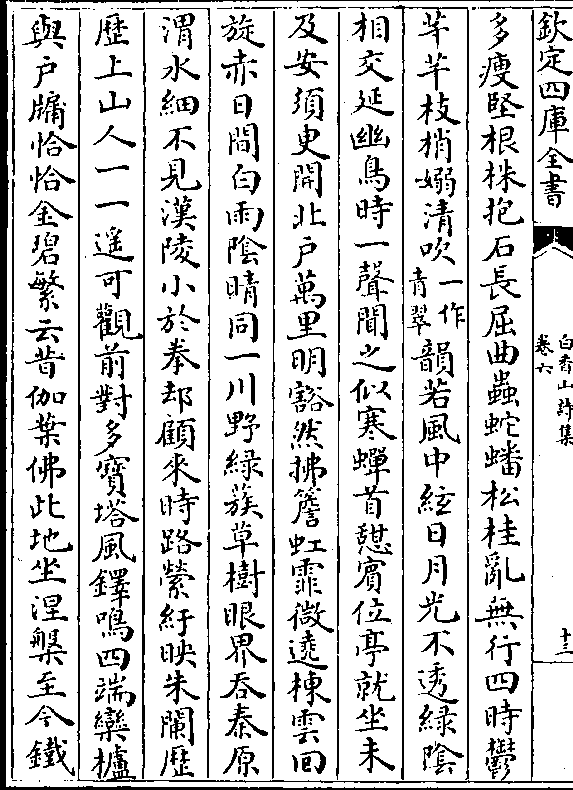 欽定四庫全書
白香山詩集
卷六
十三
多瘦堅根株抱石長屈曲蟲蛇蟠松桂亂無行四時鬱
芊芊枝梢嫋清吹一作青翠韻若風中絃日月光不透緑陰
相交延幽鳥時一聲聞之似寒蟬首憇賓位亭就坐未
及安須臾開北户萬里明豁然拂簷虹霏微遶棟雲回
旋赤日間白雨陰晴同一川野緑蔟草樹眼界吞秦原
渭水細不見漢陵小於拳却顧來時路縈紆映朱闌歴
歴上山人一一遥可觀前對多寶塔風鐸鳴四端欒櫨
與户牖恰恰金碧繁云昔伽葉佛此地坐涅槃至今鐵